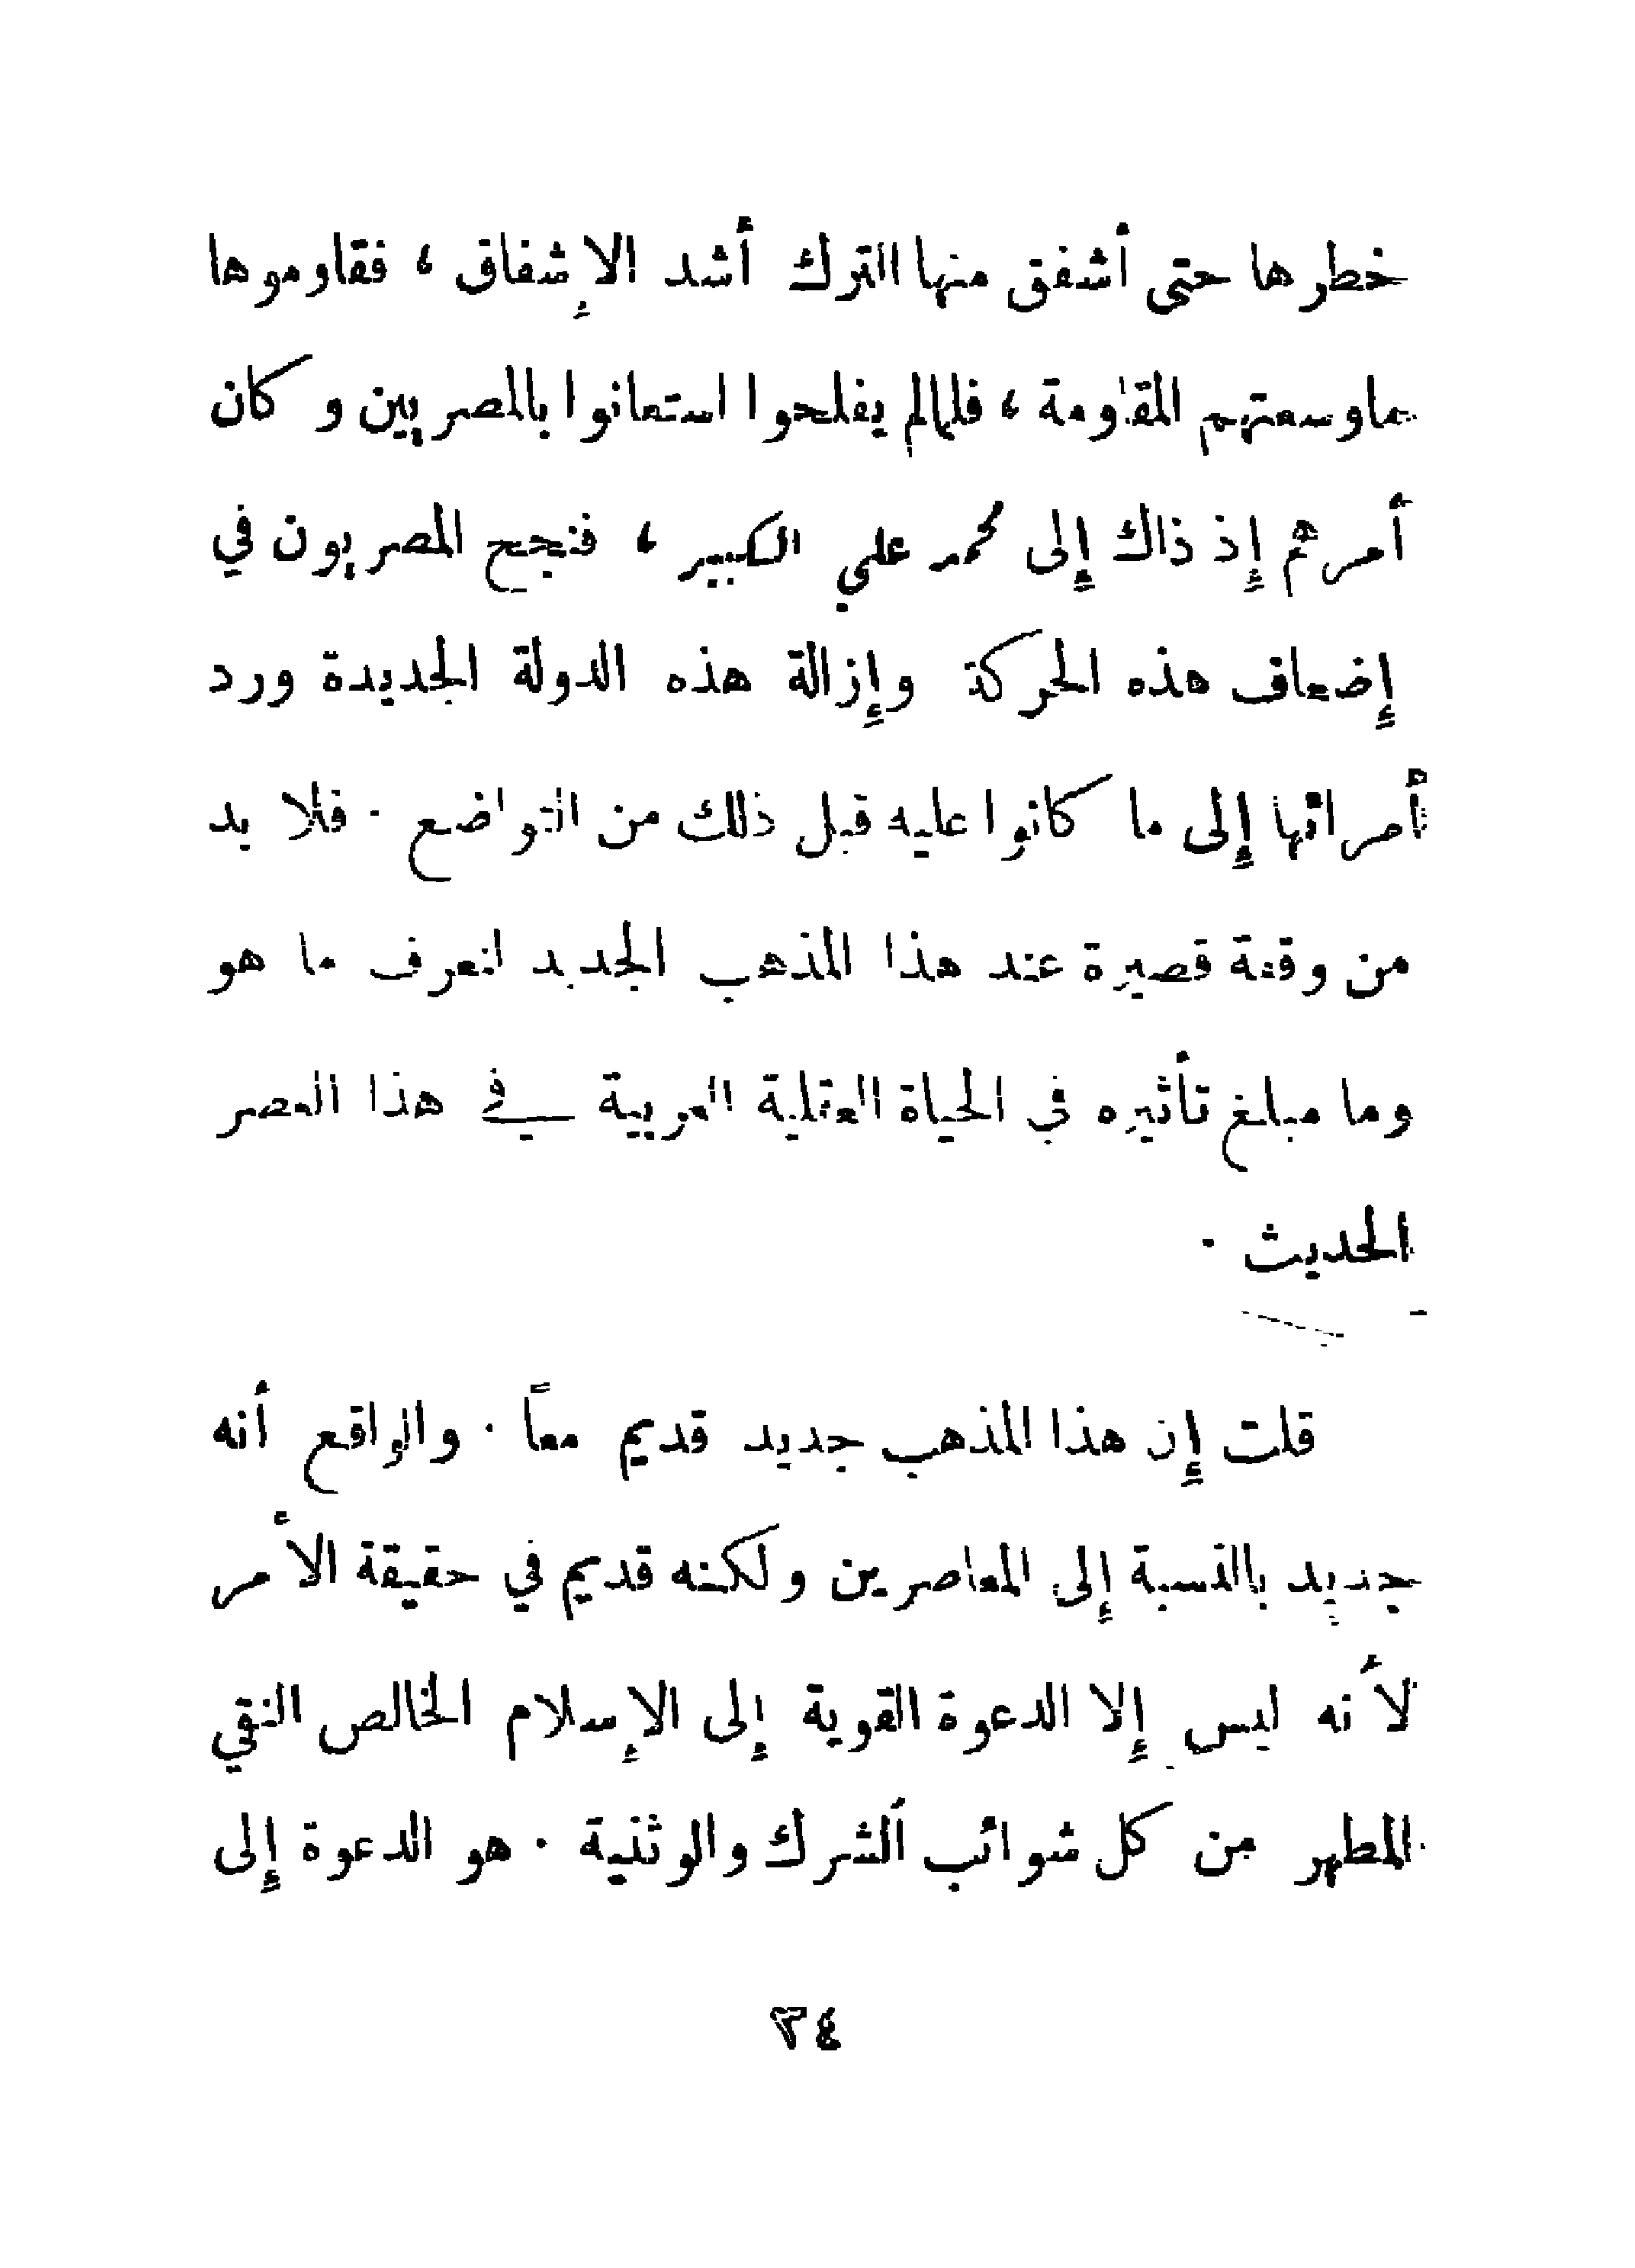 خطرها حتى أشفق منها الترك أشد الإشفاق ، فقاوموها
ما وسعتهم المقاومة ، فلما لم يفلحوا استعانوا بالمصريين وكان
أمرهم إذ ذاك إلى محمد علي الكبير ، فنجح المصريون في
إضعاف هذه الحركة وإزالة هذه الدولة الجديدة ورد
أمرائها إلى ما كانوا عليه قبل ذلك من التواضع . فلا بد
من وقفة قصيرة عند هذا المذهب الجديد لنعرف ما هو
وما مبلغ تأثيره في الحياة العقلية العربية في هذا العصر
الحديث .
قلت إن هذا المذهب جديد قديم معاً . والواقع أنه
جديد بالنسبة إلى المعاصرين ولكنه قديم في حقيقة الأمر
لأنه ليس إلا الدعوة القوية إلى الإسلام الخالص النقي
المطهر من كل شوائب الشرك والوثنية . هو الدعوة إلى
٣٤